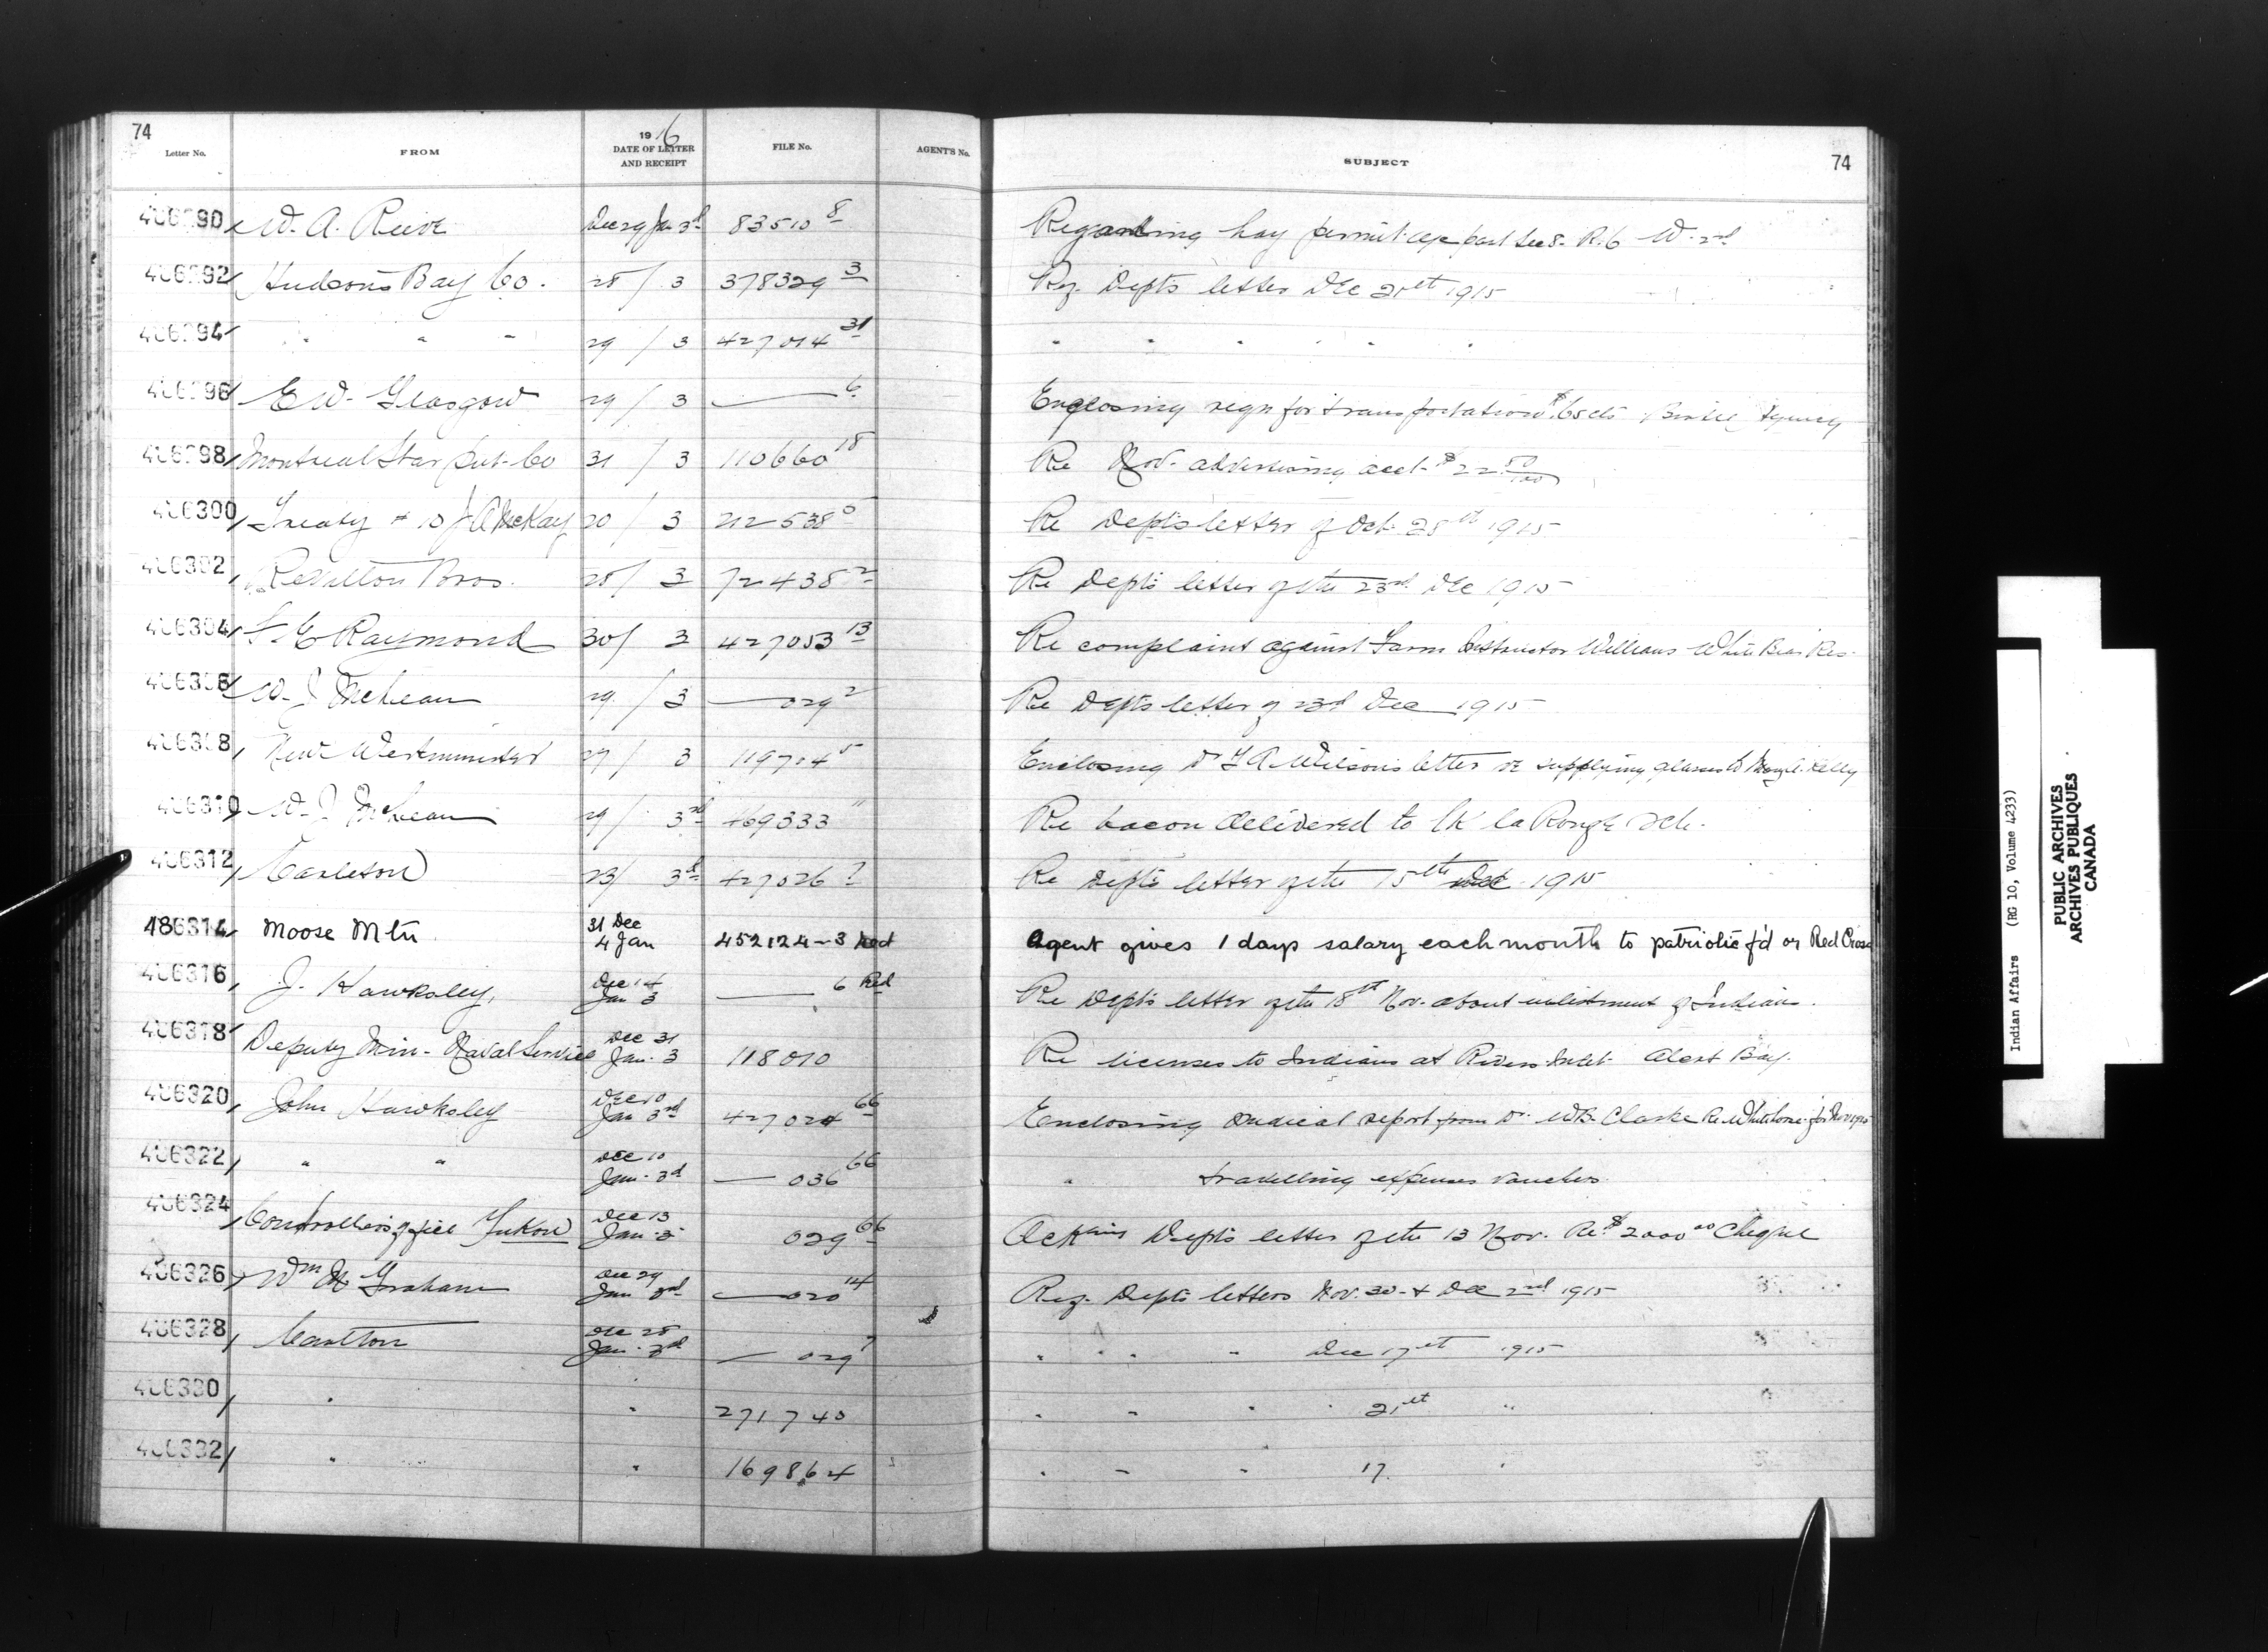 74
74
Letter No. FROM 1916 DATE OF LETTER AND RECEIPT FILE No. AGENT'S No. SUBJECT
W. A. Reeve Dec 29 Jan 3rd 83510 8 Regarding hay permit part Sec 8. R. 6 W. 2nd
Hudsons Bay Co. 28 / 3 378329 3 Reg. Depts letter Dec 21st 1915
" " " 29 / 3 427014 31 " " " " " "
E W. Glasgow 29 / 3 — 6 Enclosing for transportation Birtle Agency
Montreal Star Pub. Co 31 / 3 110660 18 Re Nov. advertising acct. $22 50/100
406300 Treaty # 10 J A McKay 20 / 3 212538 Re Depts letter of Oct. 28th 1915
406302 Revillon Bros. 28 / 3 72438 2 Re Depts letter of the 23rd Dec 1915
406304 Raymond 30 / 3 427053 13 Re complaint against Farm Instructor Williams White Bear Res.
W. J. McLean 29 / 3 — 029 2 Re Depts letter of 23d Dec 1915
406308 New Westminster 27 / 3 119704 5 Enclosing Dr Wilson's letter re supplying glasses to Kelly
406310 W. J. McLean 29 / 3rd 469333 Re bacon delivered to LK la Ronge Sch.
406312 Carleton 23 / 3d 427026 7 Re Depts letter of the 15th 1915
486314 Moose Mtn. 31 Dec 4 Jan 452124-3 Red Agent gives 1 days salary each month to patriotic f'd or Red Cross
406316 J. Hawksley, Dec 14 Jan 3 — 6 Red Re Depts letter of the 18th Nov. about enlistment of Indians.
406318 Deputy Min. Naval Service Dec 31 Jan. 3 118010 Re licenses to Indians at Rivers Inlet. Alert Bay.
406320 John Hawksley Dec 10 Jan 3rd 427024 66 Enclosing medical report from Dr. W.B. Clarke Re Whitehorse for Nov 1915
406322 " " Dec 10 Jan. 3d — 036 66 " travelling expenses vouchers
406324 Controllers office Yukon Dec 13 Jan. 3 029 66 Acking Depts letter of the 13 Nov. Re $2000 00 Cheque
406326 Wm Graham Dec 29 Jan 3rd — 020 14 Reg. Depts letters Nov. 30 & Dec 2nd 1915
406328 Carlton Dec 28 Jan. 3d — 029 7 " " " " Dec 17th 1915
406330 " " 271740 " " " " 21st "
406332 " " 169864 " " " 17 "
Indian Affairs (RG 10, Volume 4233)
PUBLIC ARCHIVES
ARCHIVES PUBLIQUES
CANADA